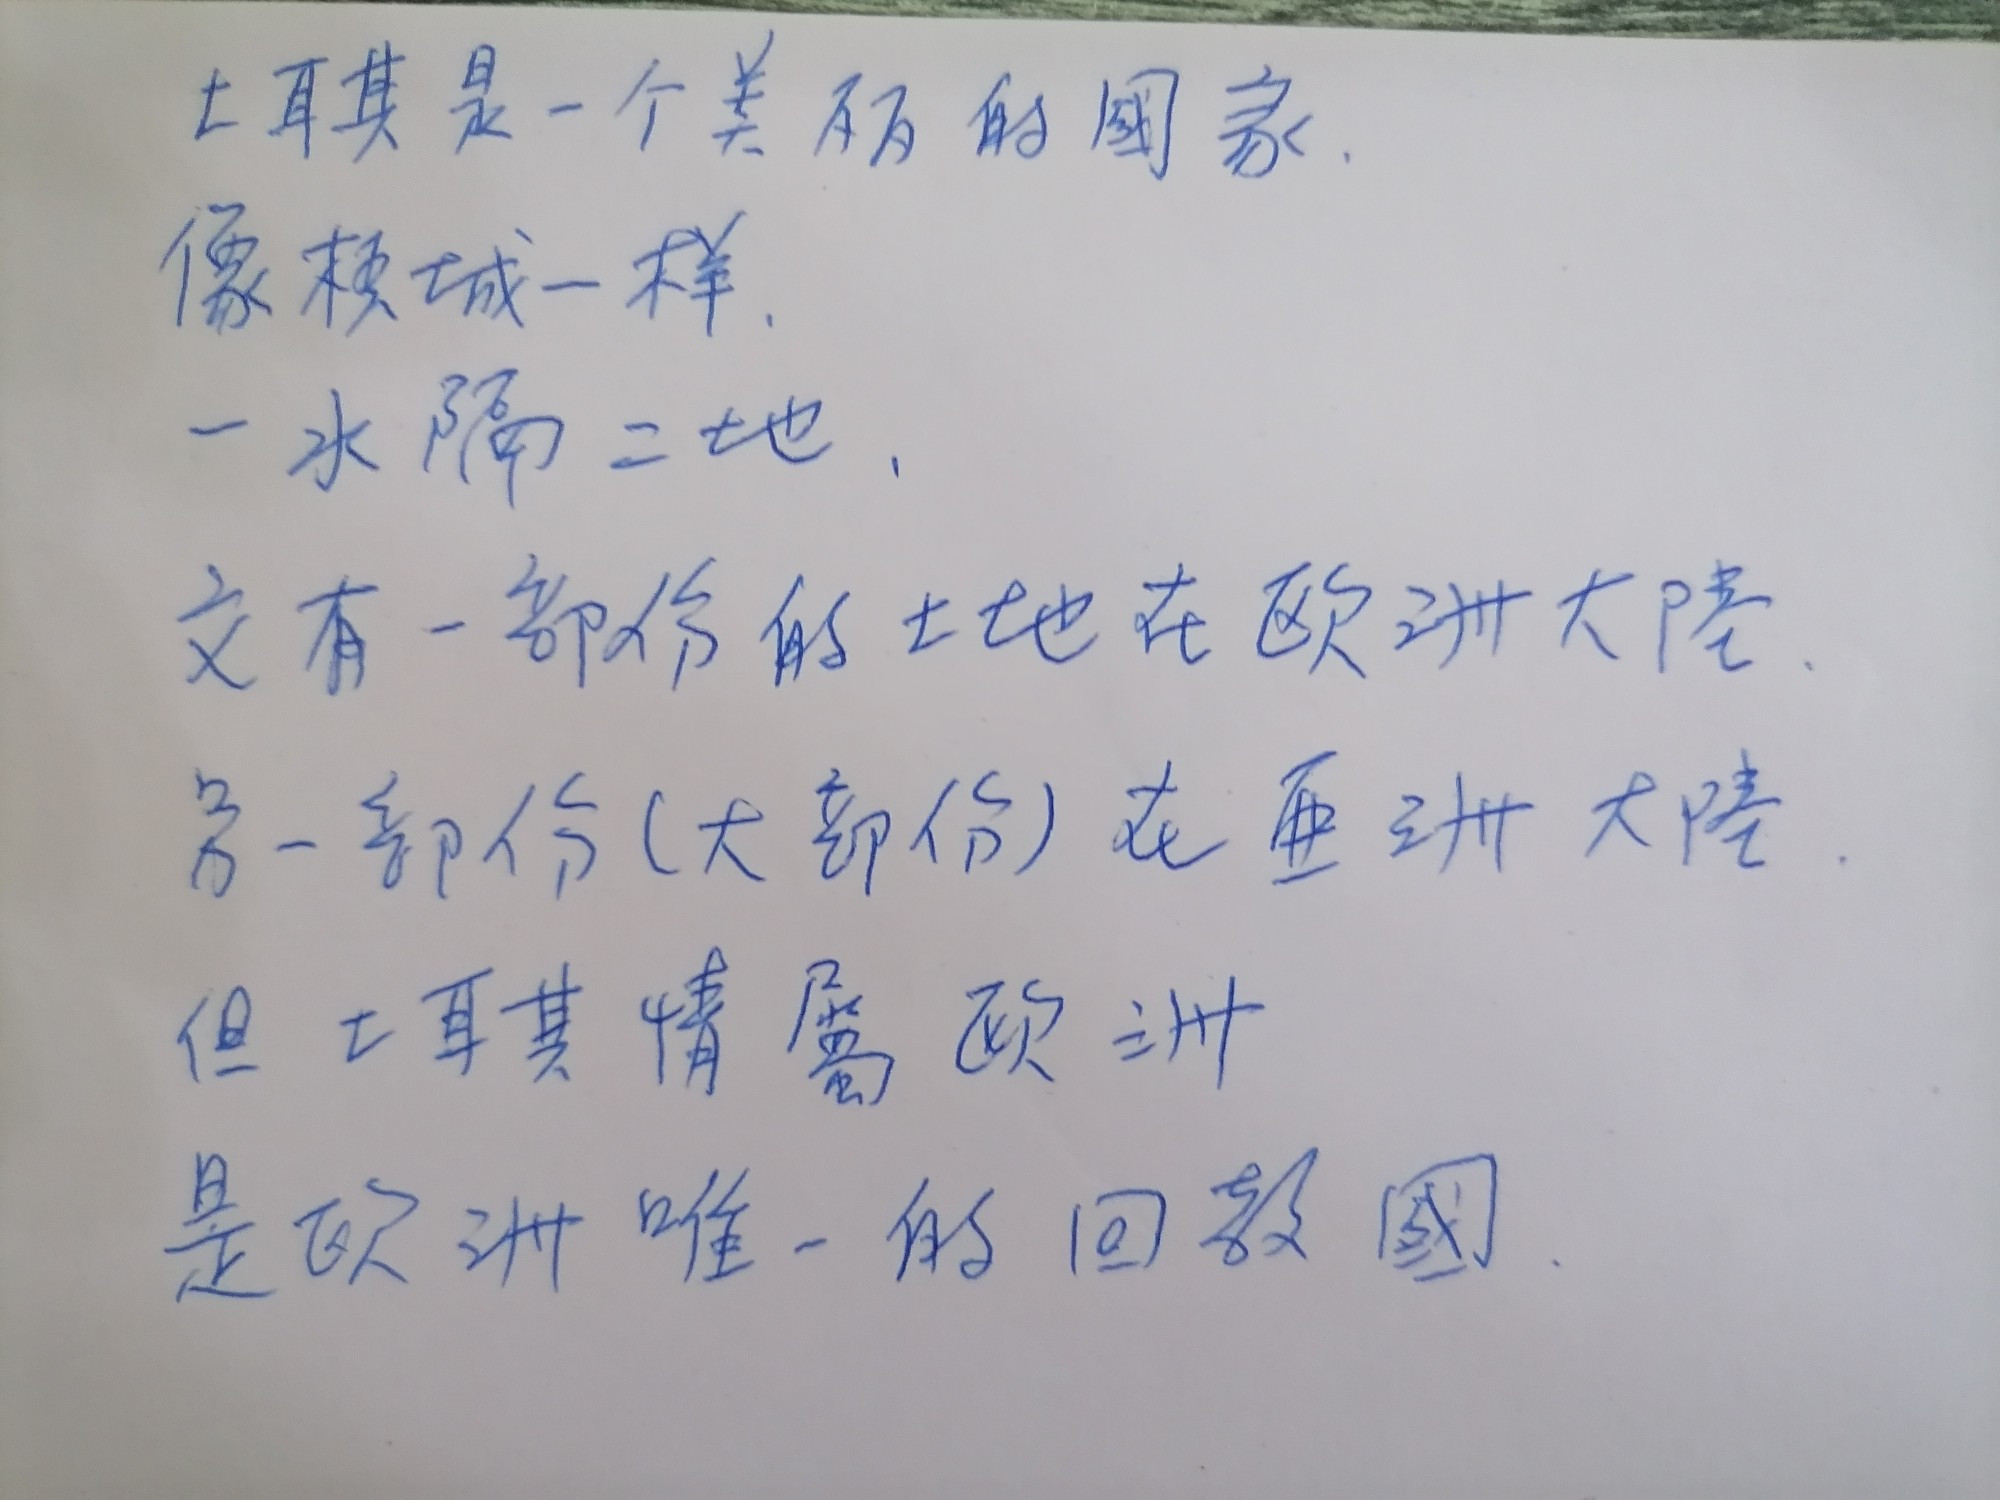 土耳其是一个美丽的國家.
像槟城一样.
一水隔二地.
文有一部份的土地在欧洲大陸.
另一部份(大部份)在亜洲大陸.
但土耳其情屬欧洲
是欧洲唯一的回教國.